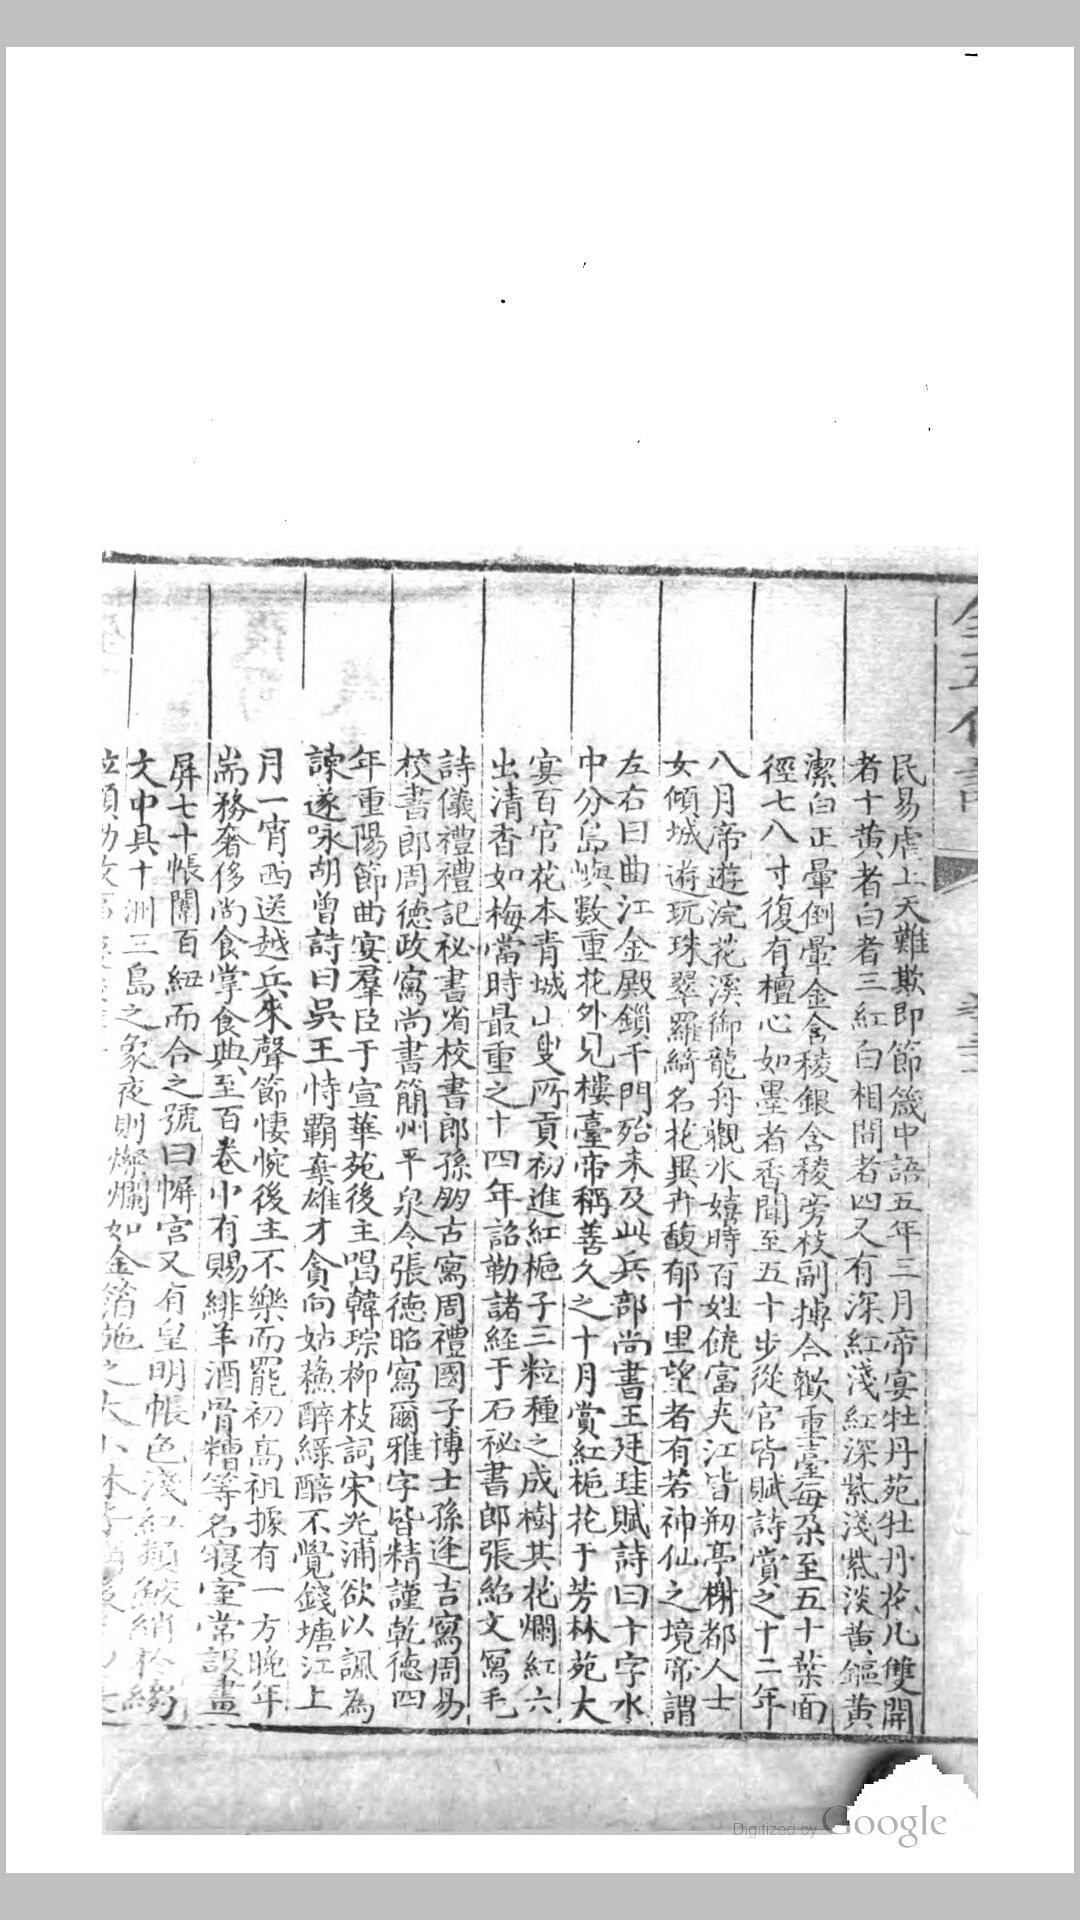 民易虐上天難欺即節箴中語五年三月帝宴牡丹苑牡丹花凡雙開
者十黃者白者三紅白相間者四又有深紅淺紅深紫淺紫淡黃鏂黃
潔白正暈倒暈金含稜銀含稜旁枝副搏合歡重臺每朶至五十葉面
徑七八寸復有檀心如墨者香聞至五十步從官皆賦詩賞之十二年
八月帝遊浣花溪御龍舟觀水嬉時百姓饒富夾江皆剏亭榭都人士
女傾城遊玩珠翠羅綺名花異卉馥郁十里望者有若神仙之境帝謂
左右曰曲江金殿鎖千門殆未及此兵部尚書王廷珪賦詩曰十字水
中分島嶼數重花外見樓臺帝稱善久之十月賞紅梔花于芳林苑大
宴百官花本青城山叟所貢初進紅梔子三粒種之成樹其花爛紅六
出清香如梅當時最重之十四年詔勒諸經于石秘書郎張紹文寫毛
詩儀禮禮記秘書省校書郎孫朋古寫周禮國子博士孫逢吉寫周易
校書郎周德政寫尚書簡州平泉令張德昭寫爾雅字皆精謹乾德四
年重陽節曲宴羣臣于宣華苑後主唱韓琮柳枝詞宋光浦欲以諷為
諫遂咏胡曾詩曰吳王恃霸棄雄才貪向姑蘓醉綠醅不覺錢塘江上
月一宵西送越兵來聲節悽惋後主不樂而罷初高祖據有一方晚年
耑務奢侈尚食掌食典至百卷中有賜緋羊酒骨糟等名寢室常設畫
屏七十帳關百紐而合之號曰幈宮又有皇明帳色淺紅類鮫綃於縐
文中具十洲三島之象夜則燦爛如金箔施之大小
Digitized by Google